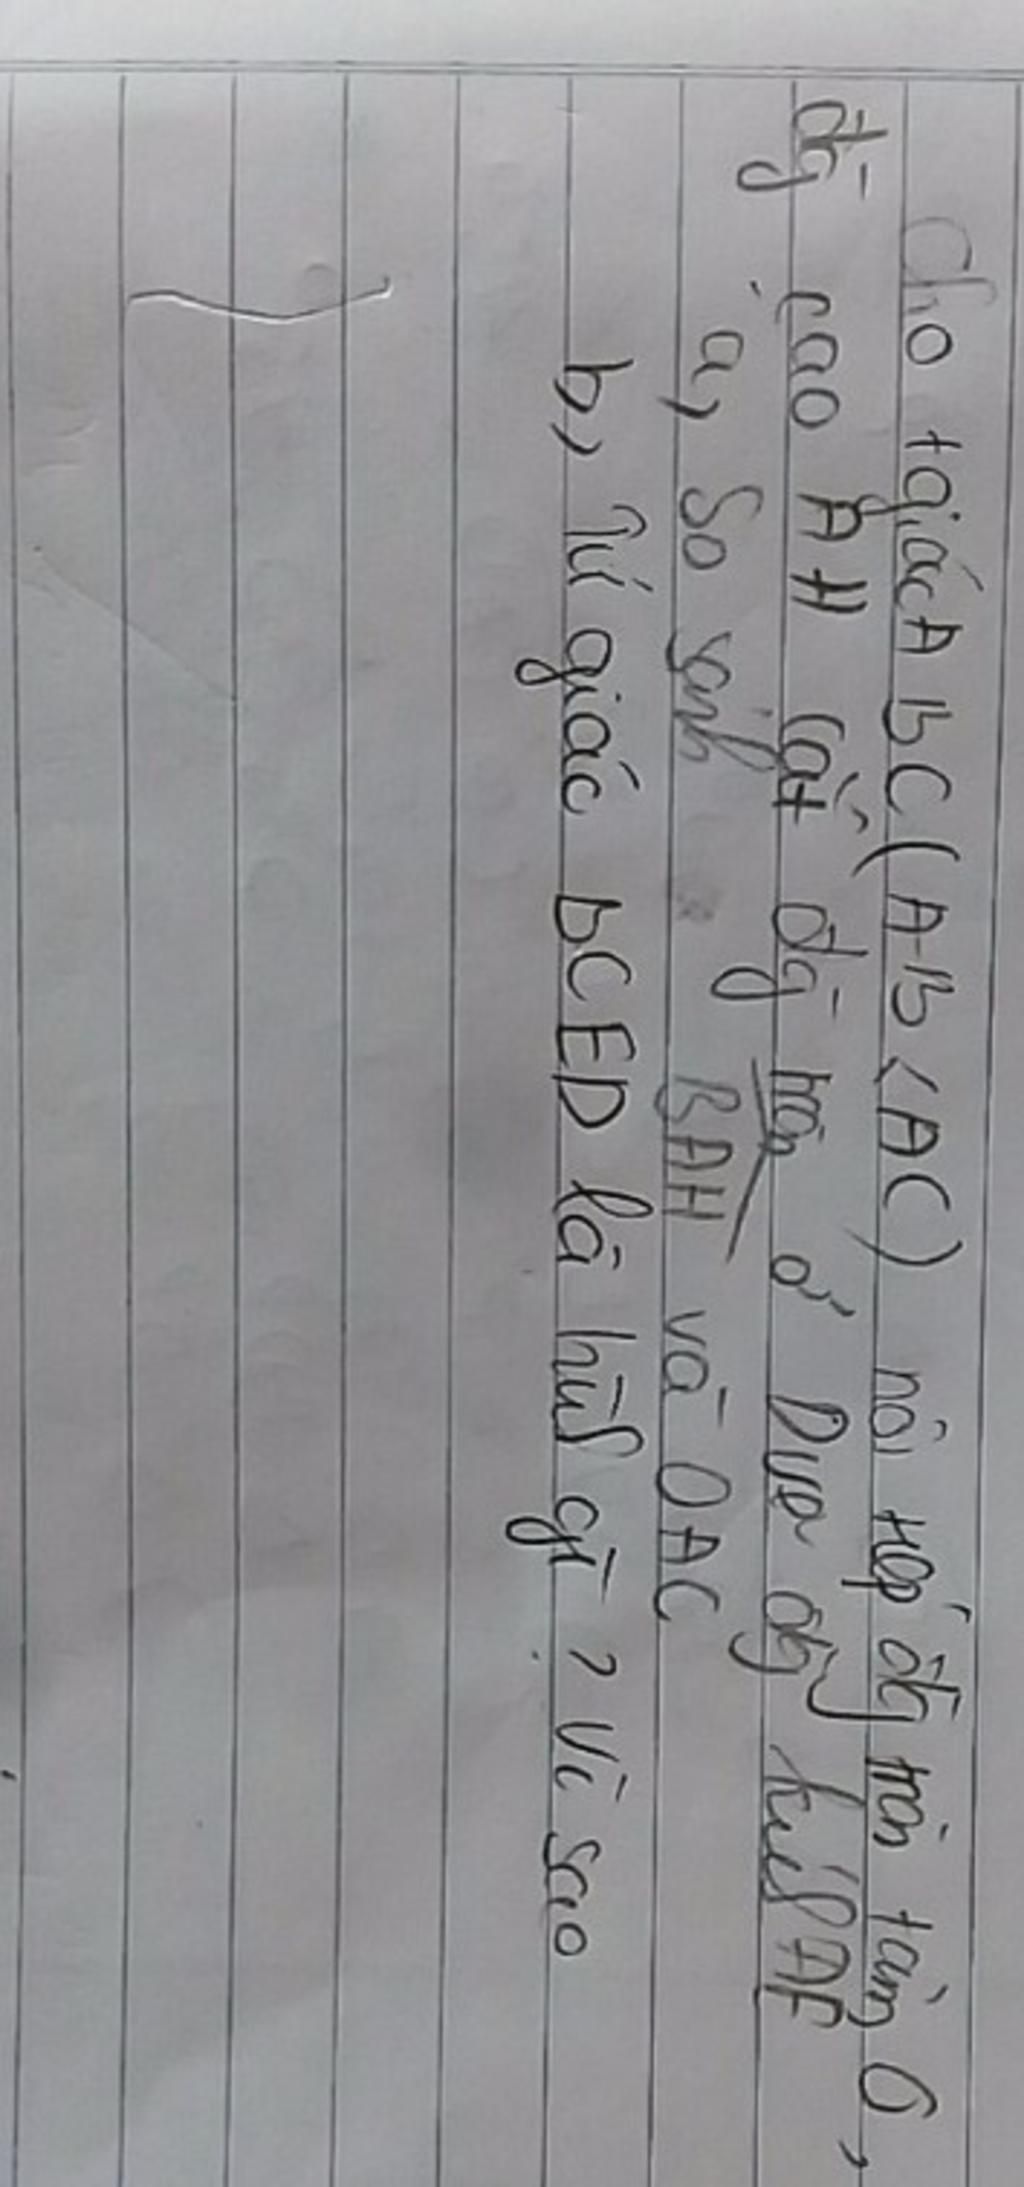 Cho tgiác ABC (AB < AC) nội tiếp đg tròn tâm O,
đg cao AH cắt đg tròn ở D vẽ đg kính AE
a, So sánh BAH và OAC
b, Tứ giác BCED là hình gì ? Vì sao